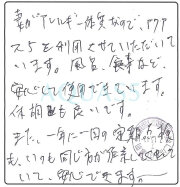 妻がアレルギー体質なので、アクア
スを利用させていただいて
います。風呂、食事など、
安心して使用できています。
体調も良いです。
また、一年に一回の定期点検
も、いつも同じ方が作業して
いて、安心できます。